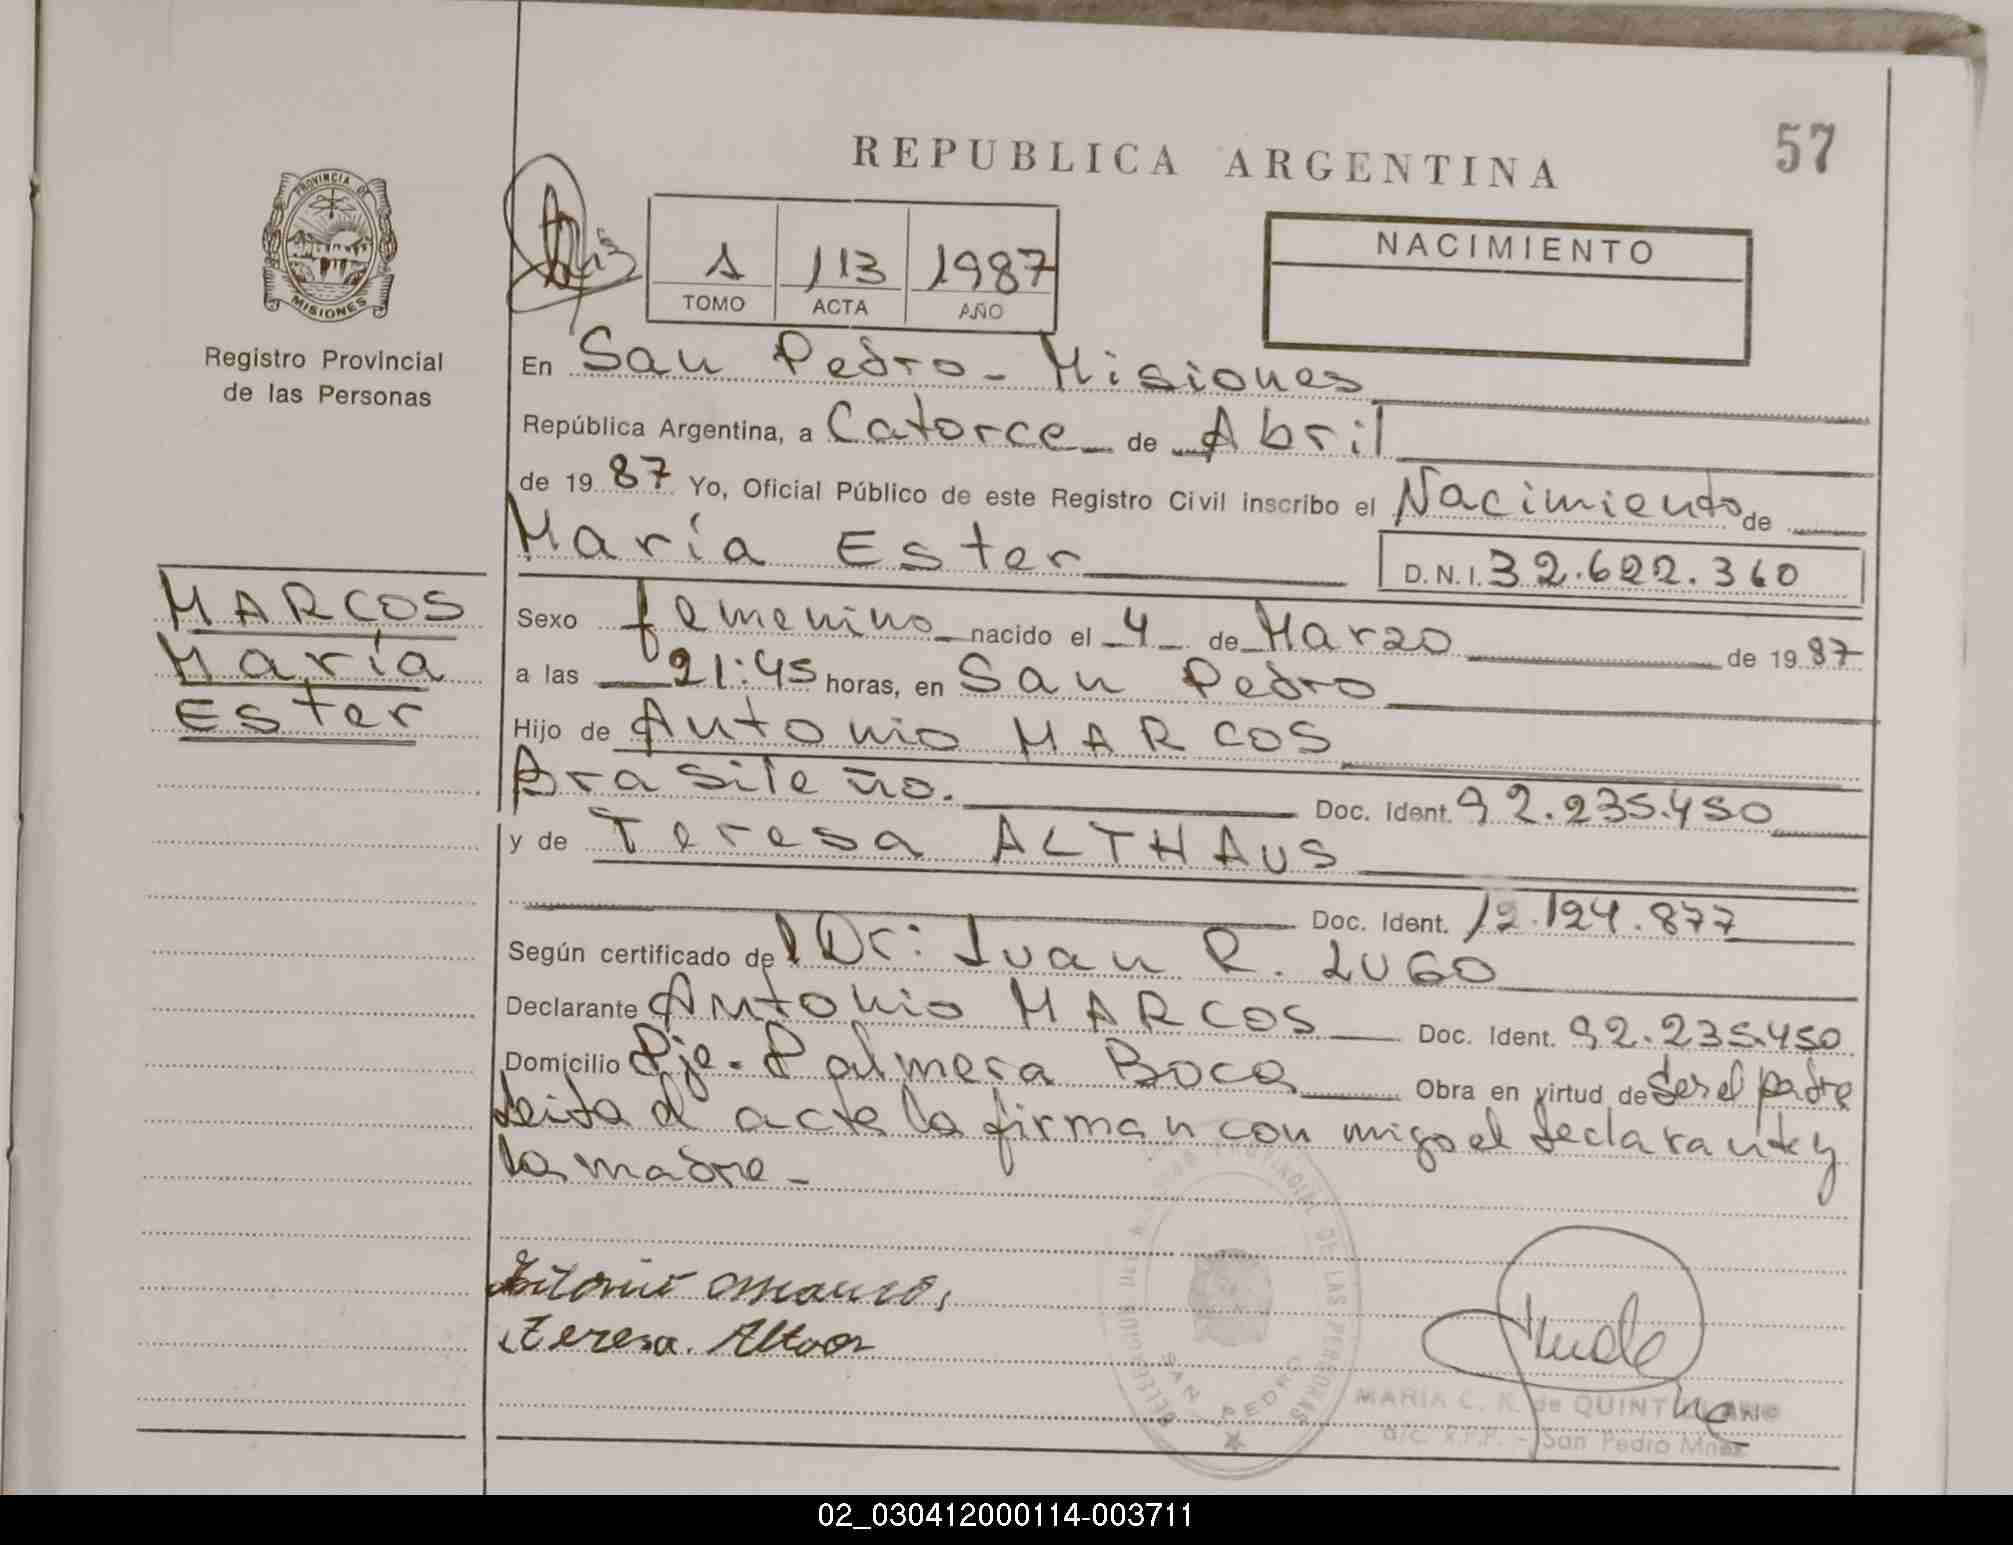 57
REPUBLICA ARGENTINA
PROVINCIA DE
MISIONES
Registro Provincial
de las Personas
1 113 1987
TOMO ACTA AÑO
NACIMIENTO
En San Pedro - Misiones
República Argentina, a Catorce de Abril
de 1987 Yo, Oficial Público de este Registro Civil inscribo el Nacimiento de
María Ester D.N.I. 32.622.360
MARCOS
María
Ester
Sexo femenino nacido el 4 de Marzo de 1987
a las 21:45 horas, en San Pedro
Hijo de Antonio MARCOS
Brasileño. Doc. Ident. 92.235.450
y de Teresa ALTHAUS
Doc. Ident. 12.124.877
Según certificado de Dr: Juan R. LUGO
Declarante Antonio MARCOS Doc. Ident. 92.235.450
Domicilio Pje. Palmera Boca Obra en virtud de ser el padre
Leida el acta la firman con migo el declarante y
la madre -
DELEGACION REGISTRO PROVINCIAL DE LAS PERSONAS
SAN PEDRO
Antonio Marcos,
Teresa. Altaos
MARIA C. K. de QUINTANA
a/c. R.P.P. - San Pedro Mnes.
02_030412000114-003711